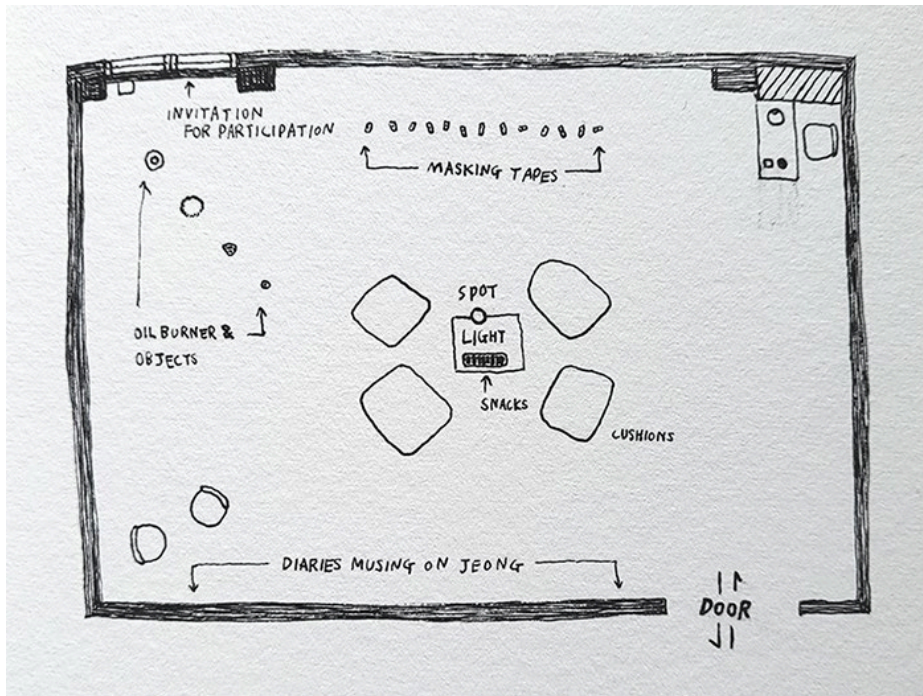 INVITATION
FOR PARTICIPATION
MASKING TAPES
SPOT
LIGHT
OIL BURNER &
OBJECTS
SNACKS
CUSHIONS
DIARIES MUSING ON JEONG
DOOR